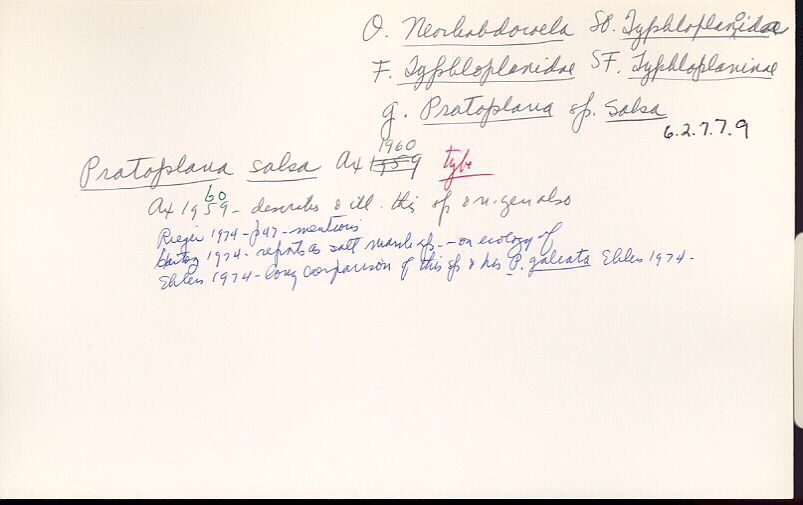 O. Neorhabdocoela SO. Typhloplanoidae
F. Typhloplanidae SF. Typhloplaninae
g. Pratoplana sp. salsa
6.2.7.7.9
1960
Pratoplana salsa Ax 1959 type
60
Ax 1959 - describes & ill. this sp & n. gen also
Rieger 1974 - p 47 - mentions
Hartog 1974 - reports as salt marsh sp. - on ecology of
Ehlers 1974 - long comparison of this sp & his P. galeata Ehlers 1974 -